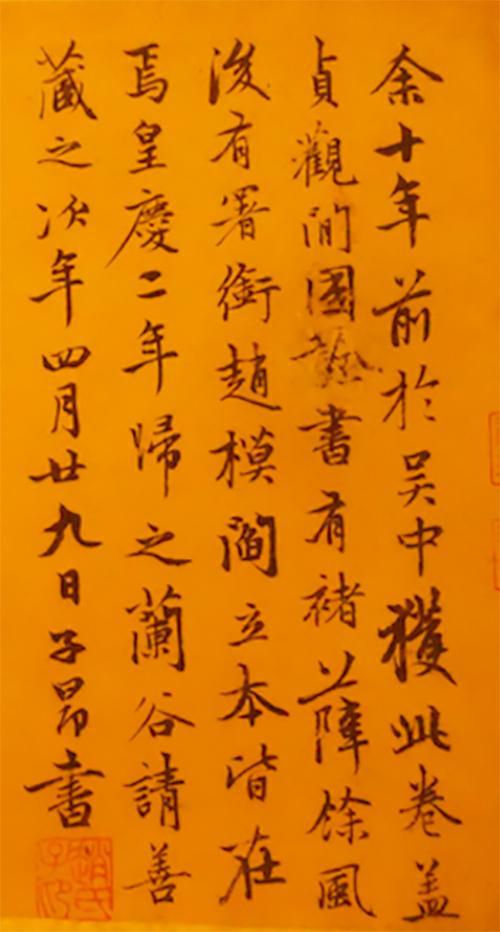 余十年前於吳中獲此卷盖
貞觀間國詮書有褚陣餘風
後有署銜趙模閻立本皆在
焉皇慶二年歸之蘭谷請善
藏之次年四月廿九日子昂書
趙氏子昂